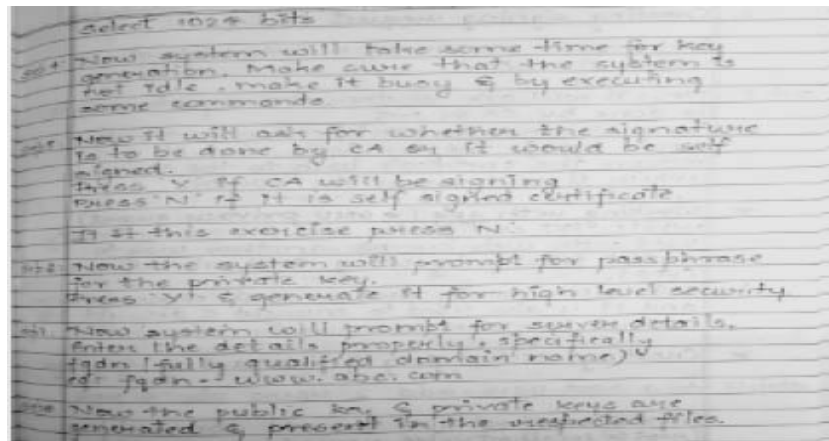 select 1024 bits
Now system will take some time for key
generation. Make sure that the system is
not idle. make it busy & by executing
some commands
Now it will ask for whether the signature
is to be done by CA or it would be self
signed.
Press Y if CA will be signing
Press 'N' if it is self signed certificate
this exercise press 'N'
Now the system will prompt for passphrase
for the private key.
Press 'Y' & generate it for high level security
Now system will prompt for server details.
Enter the details properly. specifically
fqdn (fully qualified domain name)
eg: fqdn - www.abc.com
Now the public key & private keys are
generated & present in the respected files.